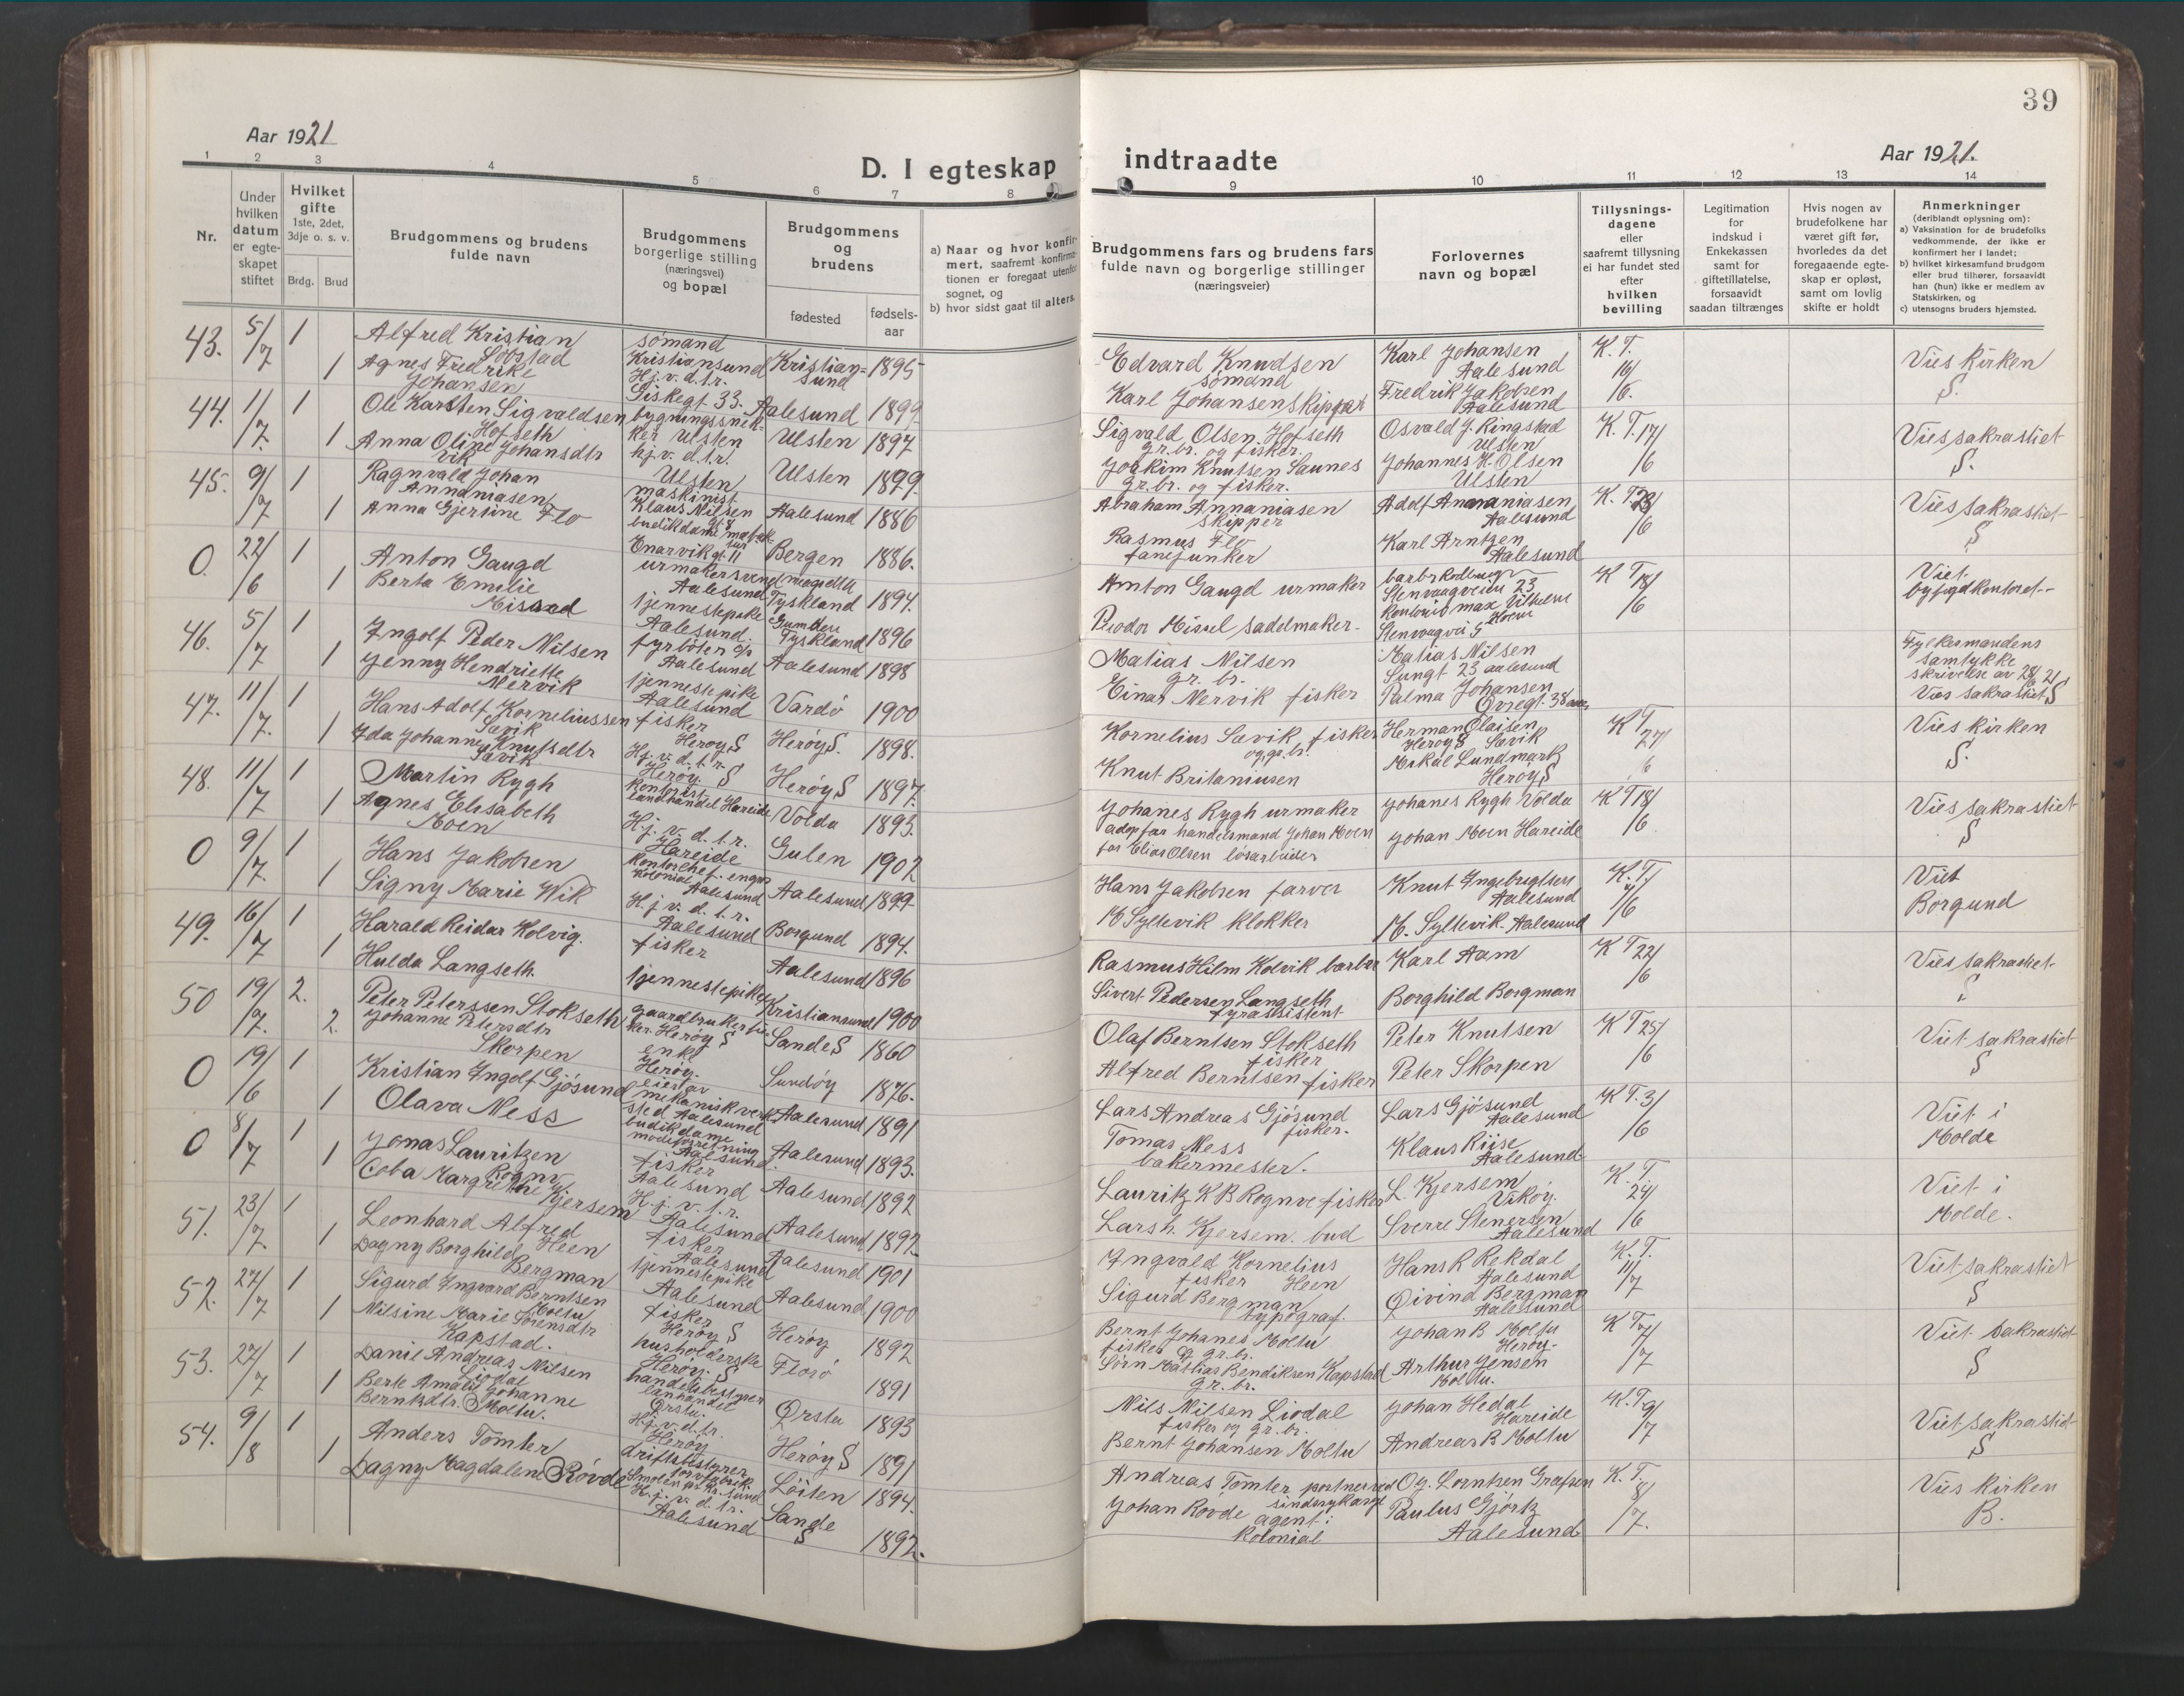 39
Aar 1921
D. I egteskap indtraadte
Aar 1921.
1 2 3 4 5 6 7 8 9 10 11 12 13 14
Nr.
Under hvilken datum er egteskapet stiftet
Hvilket gifte 1ste, 2det, 3dje o. s. v.
Brdg. Brud
Brudgommens og brudens fulde navn
Brudgommens borgerlige stilling (næringsvei) og bopæl
Brudgommens og brudens
fødested
fødsels-aar
a) Naar og hvor konfirmert, saafremt konfirmationen er foregaat utenfor sognet, og
b) hvor sidst gaat til alters.
Brudgommens fars og brudens fars fulde navn og borgerlige stillinger (næringsveier)
Forlovernes navn og bopæl
Tillysningsdagene eller saafremt tillysning ei har fundet sted efter hvilken bevilling
Legitimation for indskud i Enkekassen samt for giftetillatelse, forsaavidt saadan tiltrænges
Hvis nogen av brudefolkene har været gift før, hvorledes da det foregaaende egteskap er opløst, samt om lovlig skifte er holdt
Anmerkninger (deriblandt oplysning om):
a) Vaksination for de brudefolks vedkommende, der ikke er konfirmert her i landet;
b) hvilket kirkesamfund brudgom eller brud tilhører, forsaavidt han (hun) ikke er medlem av Statskirken, og
c) utensogns bruders hjemsted.
43. 5/7 1 Alfred Kristian Löbstad sømand Kristiansund Kristiansund 1895 Edvard Knudsen sømand Karl Johansen Aalesund K. T. 16/6. Vies kirken S.
1 Agnes Fredrike Johansen Hj. v. d. t. r. Giskegt 33. Aalesund 1899 Karl Johansen skipper Fredrik Jakobsen Aalesund
44. 11/7. 1 Ole Karsten Sigvaldsen Hofseth bygningssnekker Ulsten Ulsten 1897 Sigvald Olsen Hofseth gr. br. og fisker. Osvald J. Ringstad Ulsten K. T. 17/6 Vies sakrastiet S.
1 Anna Oline Johansdtr Vik hj. v. d. t. r. Ulsten Ulsten 1899. Joakim Knutsen Saunes gr. br. og fisker. Johannes H. Olsen Ulsten
45. 9/7 1 Ragnvald Johan Annaniasen maskinist Klaus Nilsen gt. 8 Aalesund 1886 Abraham Annaniasen skipper Adolf Annaniasen Aalesund K. T. 28/6 Vies sakrastiet S
1 Anna Gjertine Flo budikdame Enarvik gt. 11 Bergen 1886. Rasmus Flo fanejunker Karl Arntzen Aalesund
0. 22/6 1 Anton Gaugd urmakersvend Aalesund Tyskland 1894. Anton Gaugd urmaker Stenvaagveien 23 K T 18/6 Viet byfogdkontoret
1 Berta Emilie tjennestepike Aalesund. Tyskland 1896 sadelmaker
46. 5/7 1 Ingolf Peder Nilsen fyrböter Aalesund Aalesund 1898 Matias Nilsen gr. br. Matias Nilsen 23 aalesund Fylkesmandens samtykke skrivelse av 28/6 21 Vies sakrastiet S
1 Jenny Hendriette Mervik tjennestepike Aalesund Vardö 1900 Einar Mervik fisker Palma Johansen
47. 11/7. 1 Hans Adolf Korneliussen Sævik fisker Herøy S Herøy S. 1898. Kornelius Sævik fisker og gr. br. Herman Olaisen Herøy S Sævik K T 27/6 Vies kirken S.
1 Ida Johanne Knutsdtr Sævik Hj. v. d. t. r. Herøy. S Herøy S 1897. Knut Britaniusen Mikal Lundmark Herøy S
48. 11/7 1 Martin Rygh kontorist landhandel Hareide Volda 1893. Johanes Rygh urmaker Johanes Rygh Volda K T 18/6 Vies sakrastiet S
1 Agnes Elisabeth Moen H. j. v. d. t. r. Hareide Gulen 1902 adop far handelsmand Johan Moen far Elias Olsen løsarbeider Johan Moen Hareide
0 9/7. 1 Hans Jakobsen kontorchef. engros kolonial Aalesund Aalesund 1899 Hans Jakobsen farver Knut Ingebregtsen Aalesund K. T. Viet Borgund
1 Signy Marie Wik H. j v. d. t. r. Aalesund Borgund 1894. M Syltevik klokker M. Syltevik Aalesund
49. 16/7 1 Harald Reidar Kolvig. fisker Aalesund 1896 Rasmus Hilm Kolvik barber Karl Aam K T 22/6 Vies sakrastiet S
1 Hulda Langseth. tjennestepike Kristiansund 1900 Sivert Pedersen Langseth fyrassistent Borghild Borgman
50 19/7. 2. Peter Peterssen Stokseth gaardbruker Herøy S Sande S 1860 Olaf Berntsen Stokseth fisker Peter Knutsen K T 25/6 Viet sakrastiet S
2. Johanne Petersdtr Skorpen enke Herøy. Sandøy 1876. Alfred Berntsen fisker Peter Skorpen
0 19/6 1 Kristian Ingolf Gjøsund eier av mekanisk verksted Aalesund Aalesund 1891 Lars Andreas Gjøsund fisker. Lars Gjøsund Aalesund K T. 3/6 Viet i Molde
1 Olava Ness budikdame modeforretning Aalesund Aalesund 1893. Tomas Ness bakermester. Klaus Riise Aalesund
0 8/7 1 Jonas Lauritzen Rognø fisker Aalesund Aalesund 1892 Lauritz K B Rognve fisker L. Kjersem Vikøy. K. T. 24/6 Viet i Molde.
1 Coba Margrethe Kjersem H. j. v. t. r. Aalesund Aalesund 1892. Lars h. Kjersem. bud Sverre Stenersen Aalesund
51. 23/7. 1 Leonhard Alfred Heen fisker Aalesund Aalesund 1901 Ingvald Kornelius Heen fisker Hans R Rekdal Aalesund K. T. 11/7 Viet sakrastiet S
1 Dagny Borghild Bergman tjennestepike Aalesund Aalesund 1900 Sigurd Bergman typograf. Øivind Bergman Aalesund
52. 27/7 1 Sigurd Ingvard Berntsen Moltu fisker Herøy S Herøy 1892 Bernt Johanes Moltu fisker og gr. br. Johan B Moltu Herøy K T 7/7 Viet sakrastiet S
1 Nilsine Marie Sørensdtr Kapstad. husholderske Herøy. S Florö 1891 Sørn Mattias Bendiksen Kapstad gr. br. Arthur Jensen Moltu.
53. 27/7 1 Danil Andreas Nilsen Liodal handelsbestyrer lanhandel Ørsta. Ørsta 1893 Nils Nilsen Liodal fisker og gr. br. Johan Hedal Hareide K. T. 9/7 Viet sakrastiet S
1 Berte Amalie Johanne Berntzdtr. Moltu. H. j. v. d. t. r. Herøy Herøy S 1891 Bernt Johansen Moltu Andreas B Moltu
54. 9/8 1 Anders Tomter driftsbestyrer torvfabrik Smølen pr. kr. sund Löiten 1894. Andreas Tomter Og. Lorntsen Grafsen K. T. 8/7. Vies kirken B.
1 Dagny Magdalene Røvde H. j. v. d. t. r. Aalesund Sande S 1892. Johan Rovde agent i kolonial Paulus Gjørtz Aalesund